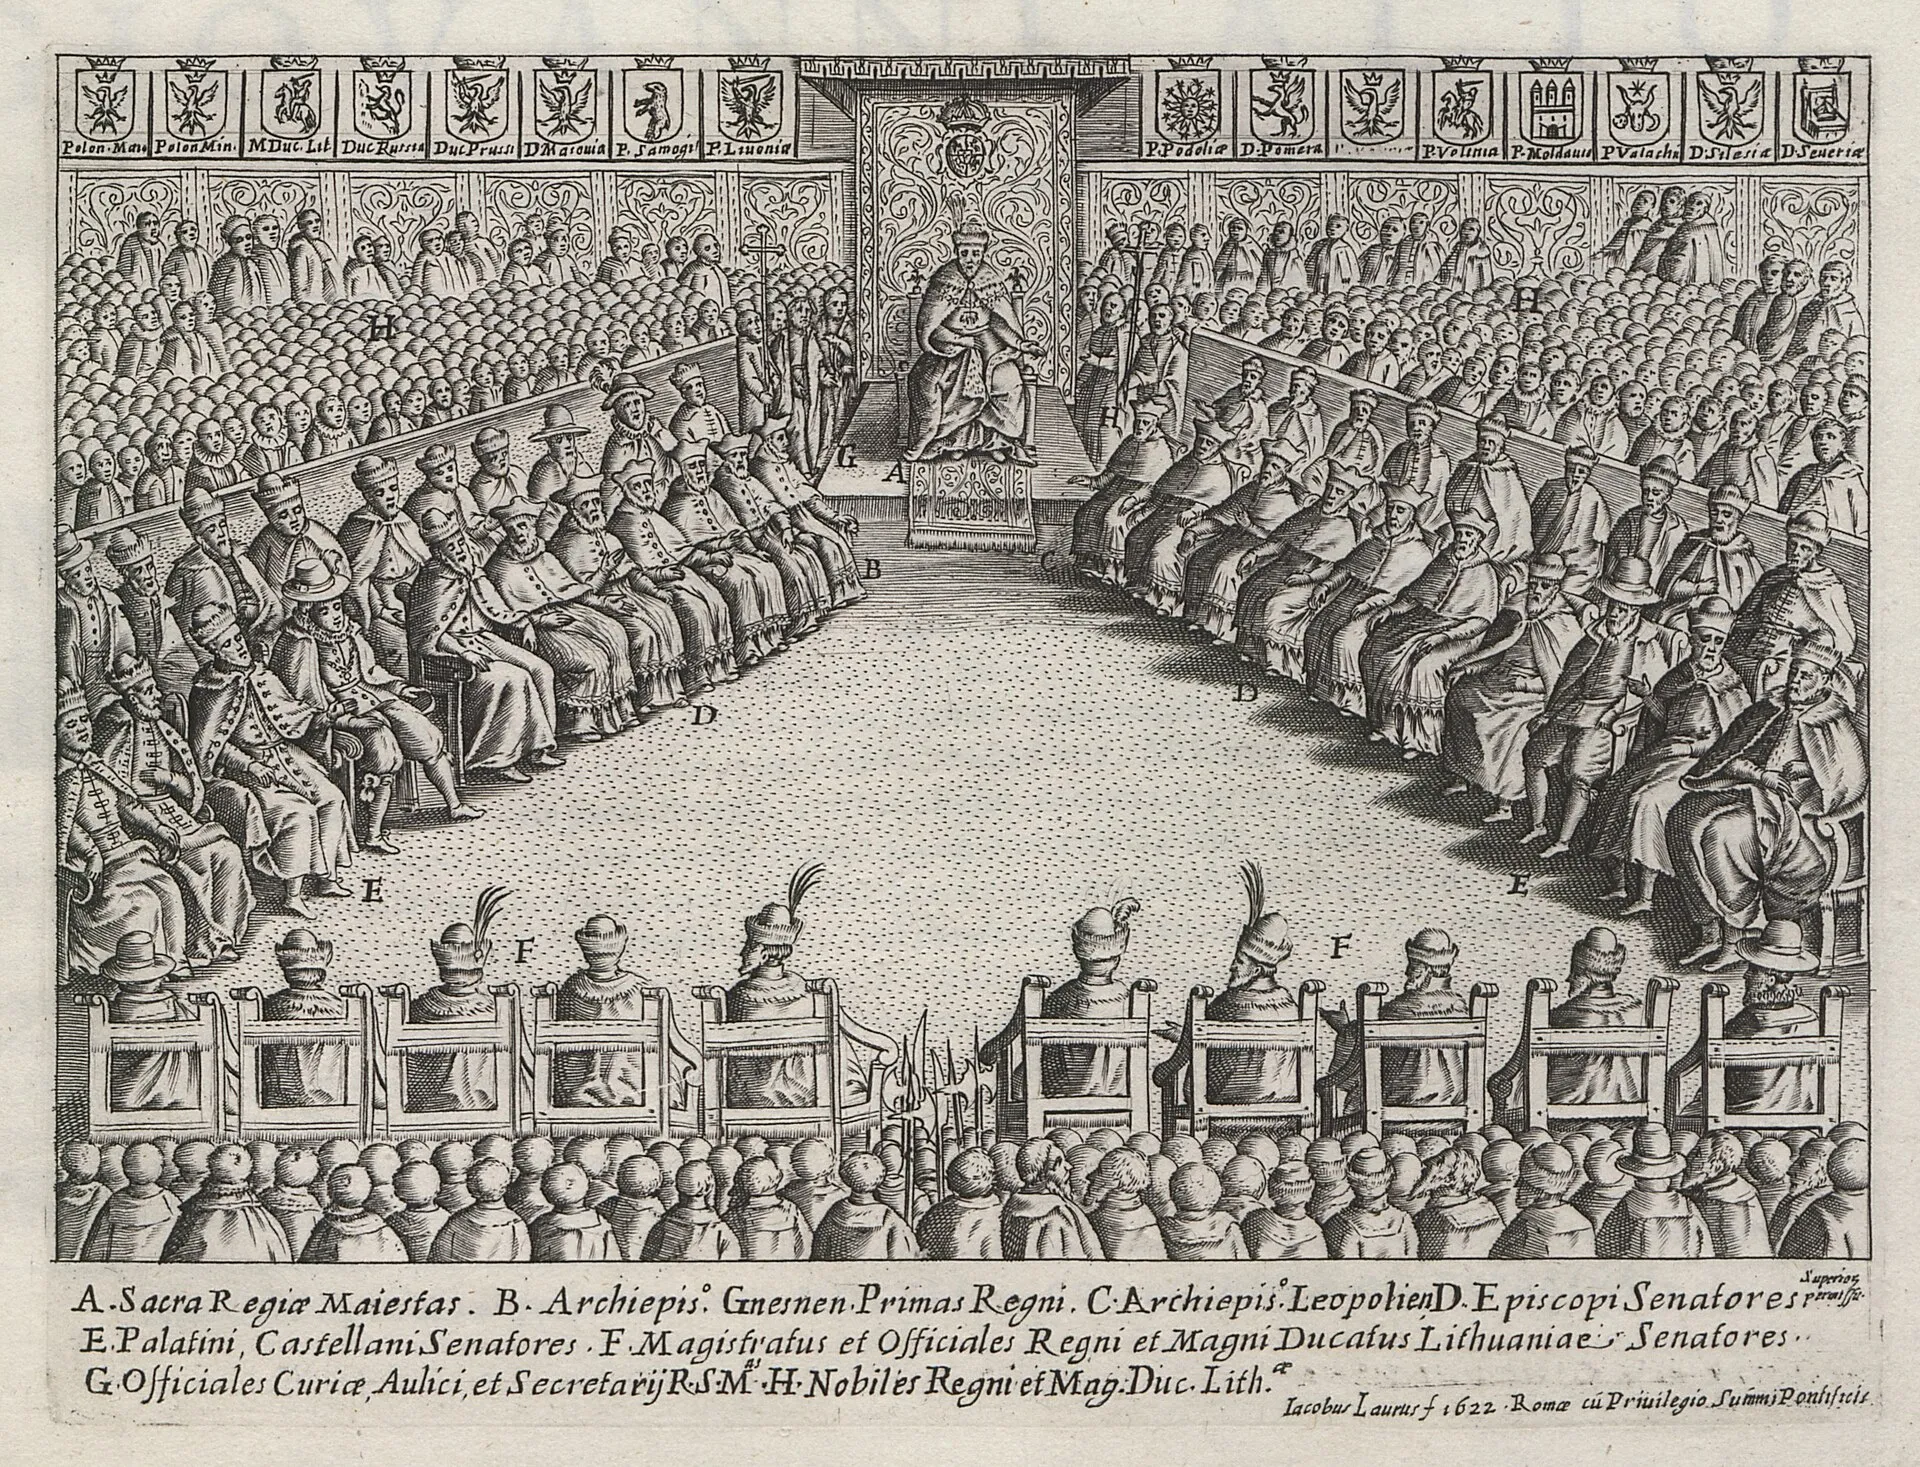 Polon·Maio
Polon Min.
M Duc. Lit
Duc Russia
Duc Prussi
D Masouia
P. Samogi
P. Liuoniæ
P. Podoliæ
D. Pomera
P. Volinia
P. Moldauia
P Valachi
D. Silesiæ
D. Seueriæ
H
H
H
G
A
B
C
D
D
E
E
F
F
A. Sacra Regiæ Maiestas. B. Archiepis⁰. Gnesnen. Primas Regni. C. Archiepis⁰. Leopolien D. Episcopi Senatores
Superior
permissu.
E. Palatini, Castellani Senatores. F. Magistratus et Officiales Regni et Magni Ducatus Lithuaniae Senatores.
G. Officiales Curiæ, Aulici, et Secretarij R. S. Mᵃˢ. H. Nobiles Regni et Mag. Duc. Lith.æ
Iacobus Laurus f 1622. Romæ cũ Priuilegio Sum̃i Pontificis